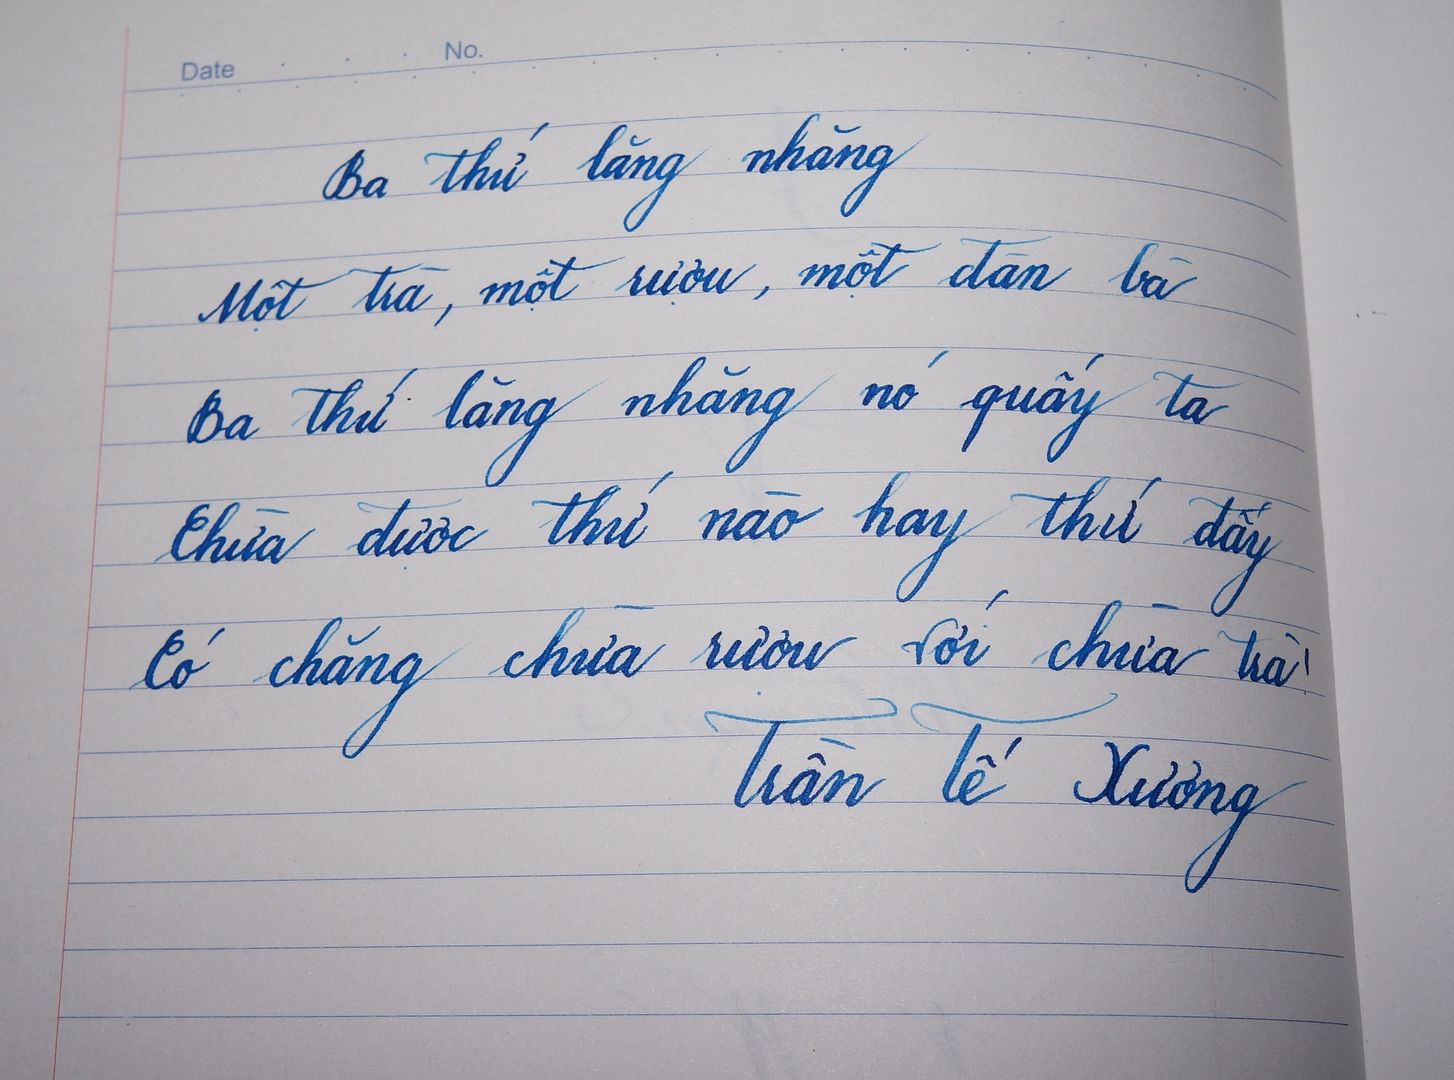 Date No.
Ba thứ lăng nhăng
Một trà, một rượu, một đàn bà
Ba thứ lăng nhăng nó quấy ta
Chừa được thứ nào hay thứ đấy
Có chăng chừa rượu với chừa trà!
Trần Tế Xương